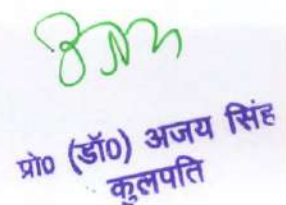 प्रो0 (डॉ0) अजय सिंह
कुलपति